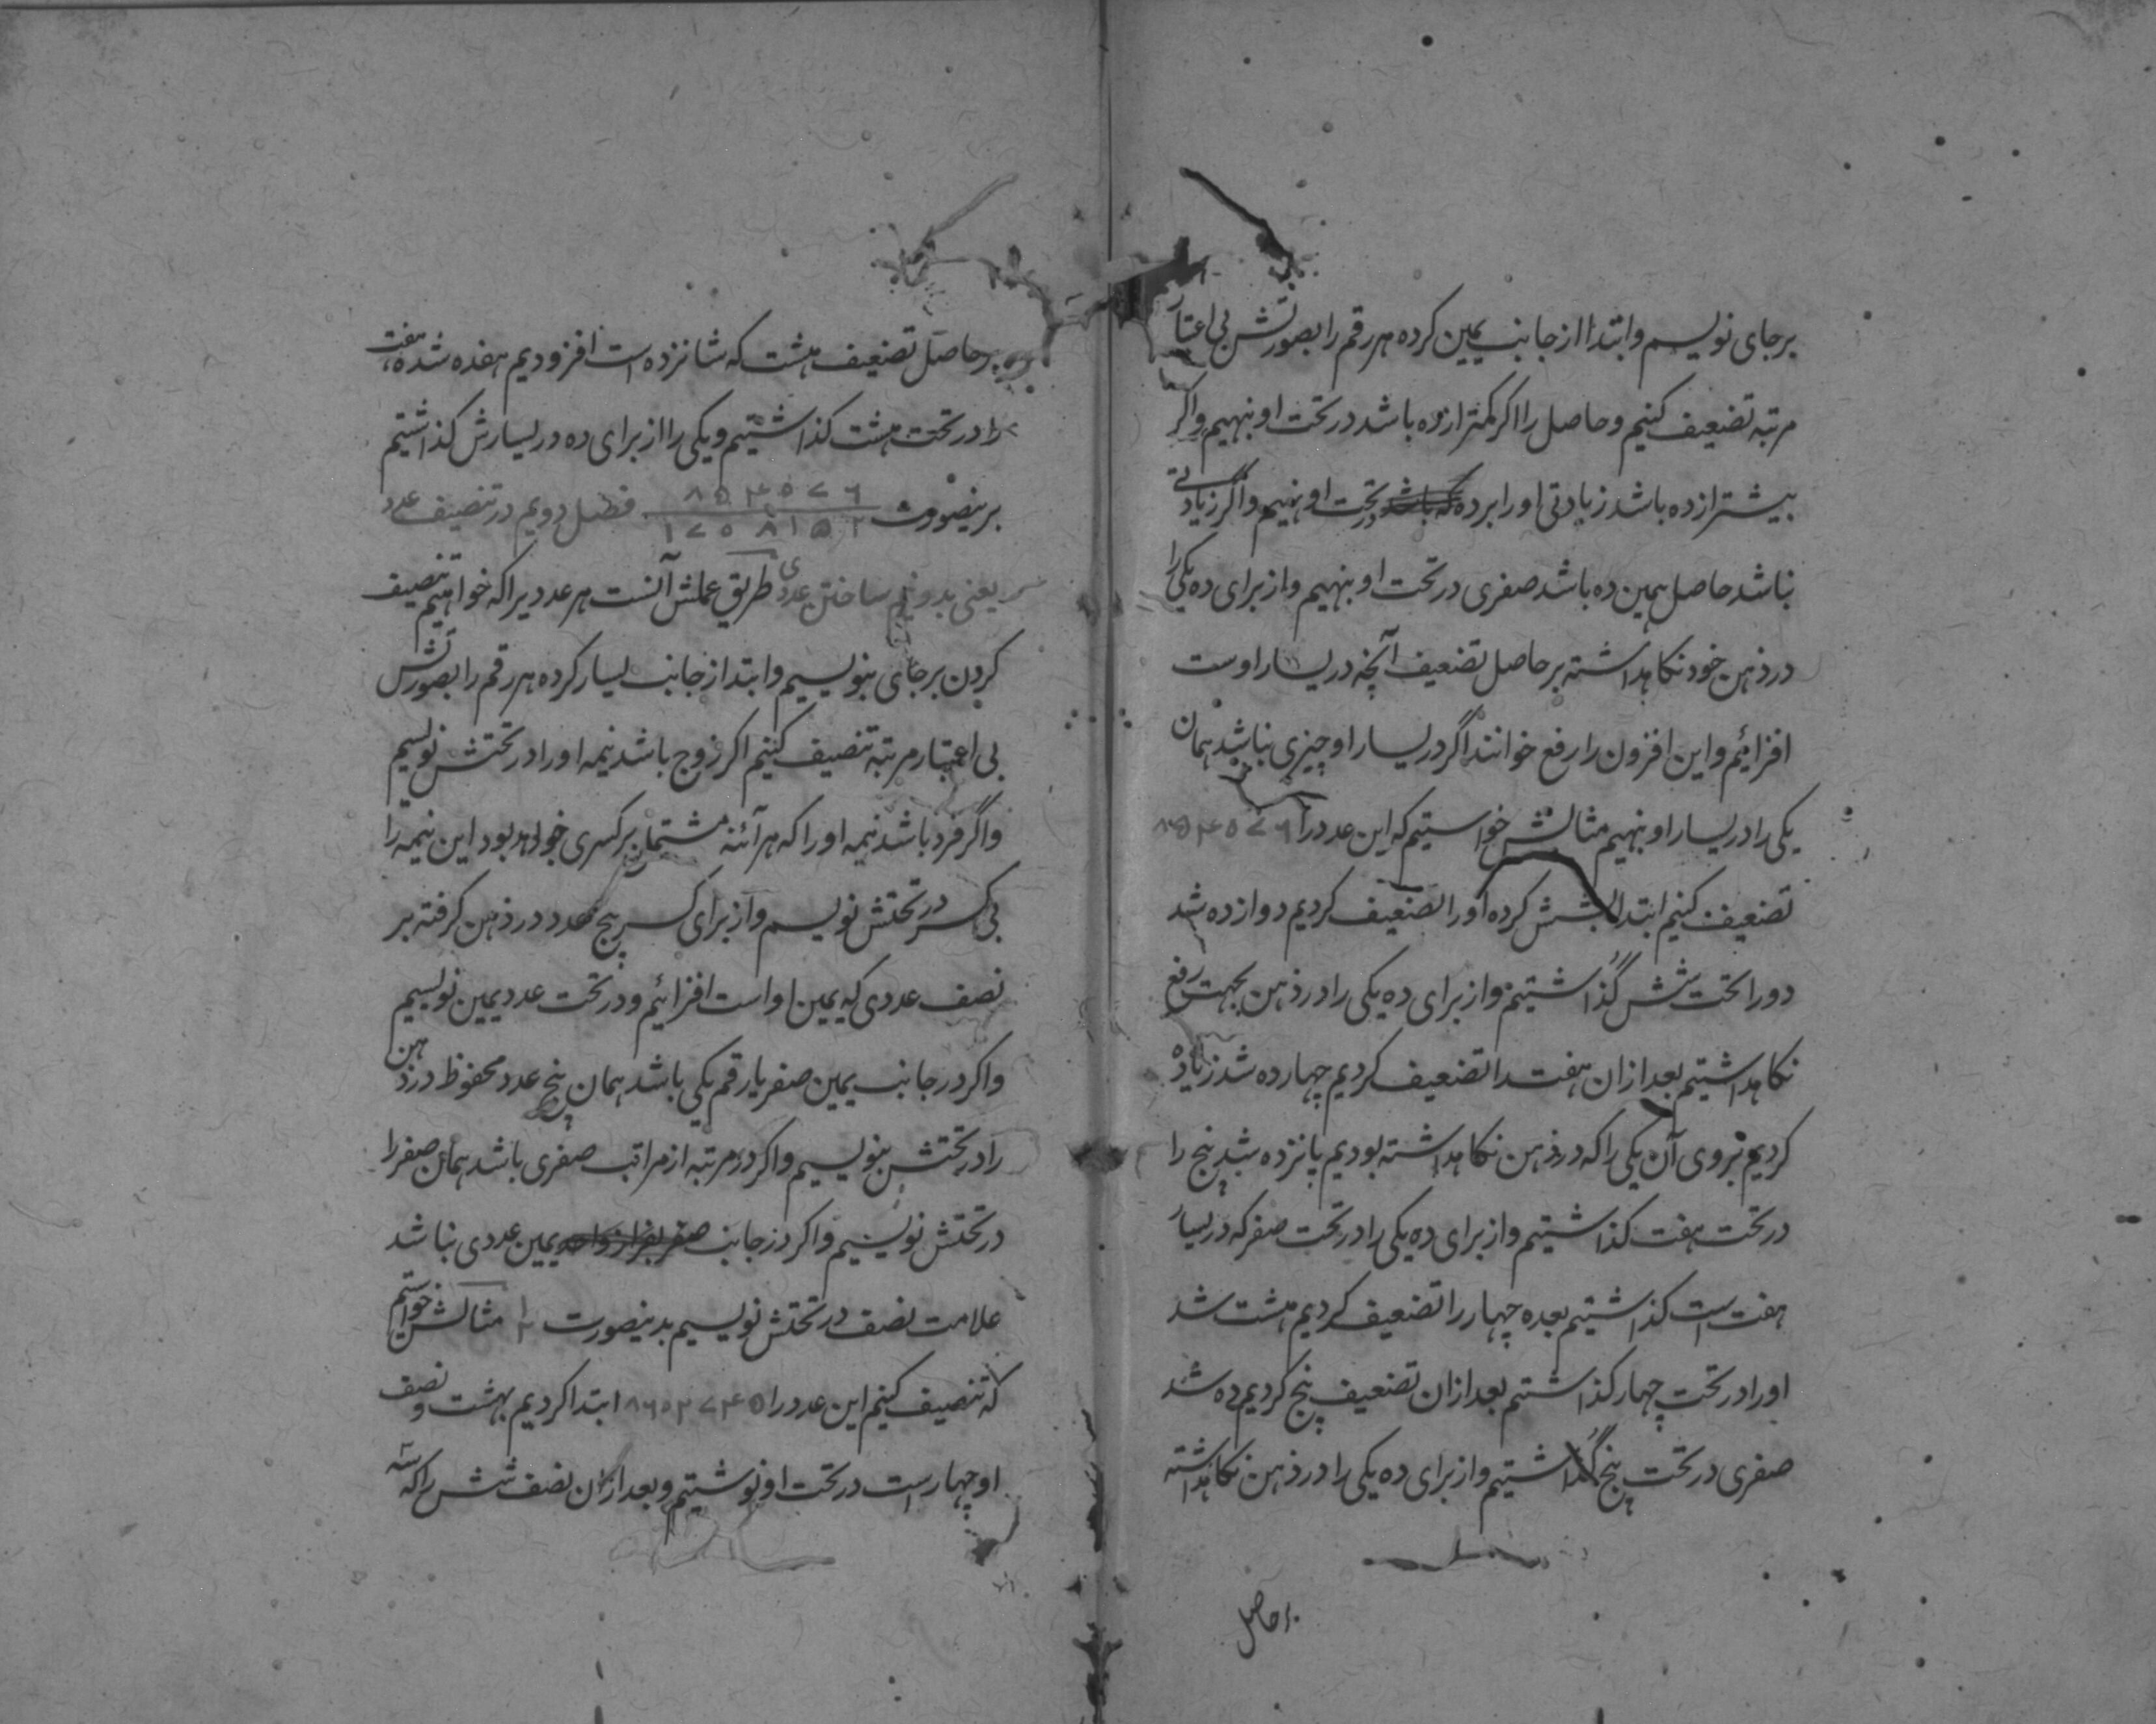 برجای نویسم و ابتدا از جانب یمین کرده هر رقم را بصورتش بی اعتبار
مرتبه تضعیف کنیم و حاصل را اگر کمتر از ده باشد در تحت او بنهیم و اگر
بیشتر از ده باشد زیادتی او را بر ده در تحت او بنهیم و اگر زیادتی
نباشد حاصل همین ده باشد صفری در تحت او بنهیم و از برای ده یکی را
در ذهن خود نگاهداشته بر حاصل تضعیف آنچه در یسار اوست
افزائیم و این افزون را رفع خوانند اگر در یسار او چیزی نباشد همان
یکی را در یسار او بنهیم مثالش خواستیم که این عدد را ۸۵۴۰۷۶
تضعیف کنیم ابتدا بشش کرده او را تضعیف کردیم دوازده شد
دو را تحت شش گذاشتیم و از برای ده یکی را در ذهن بجهت رفع
نگاهداشتیم بعد از ان هفت را تضعیف کردیم چهارده شد زیاده
کردیم بروی آن یکی را که در ذهن نگاهداشته بودیم پانزده شد پنج را
در تحت هفت گذاشتیم و از برای ده یکی را در تحت صفر که در یسار
هفت است گذاشتیم بعده چهار را تضعیف کردیم هشت شد
او را در تحت چهار گذاشتیم بعد از ان تضعیف پنج کردیم ده شد
صفری در تحت پنج گذاشتیم و از برای ده یکی را در ذهن نگاهداشته
بر حاصل
بر حاصل تضعیف هشت که شانزده است افزودیم هفده شده هفت
را در تحت هشت گذاشتیم و یکی را از برای ده در یسارش گذاشتیم
برینصورت ۸۵۴۰۷۶ ۱۷۰۸۱۵۲ فصل دویم در تنصیف عدد
یعنی بدو نیم ساختن عددی طریق عملش آنست هر عددیرا که خواهیم تنصیف
کردن برجای بنویسیم و ابتدا از جانب یسار کرده هر رقم را بصورتش
بی اعتبار مرتبه تنصیف کنیم اگر زوج باشد نیمه او را در تحتش نویسیم
و اگر فرد باشد نیمه او را که هر آئنه مشتمل بر کسری خواهد بود این نیمه را
بی کسر در تحتش نویسم و از برای کسر پنج عدد در ذهن گرفته بر
نصف عددی که یمین او است افزائیم و در تحت عدد یمین نویسیم
و اگر در جانب یمین صفر یا رقم یکی باشد همان پنج عدد محفوظ در ذهن
را در تحتش بنویسیم و اگر در مرتبه از مراتب صفری باشد همان صفر را
در تحتش نویسیم و اگر در جانب یمین عددی نباشد
علامت نصف در تحتش نویسیم بدینصورت مثالش خواستم
که تنصیف کنیم این عدد را ۸۶۰۳۷۴۵ ابتدا کردیم بهشت و نصف
او چهار است در تحت او نوشتیم و بعد از ان نصف شش را که سه